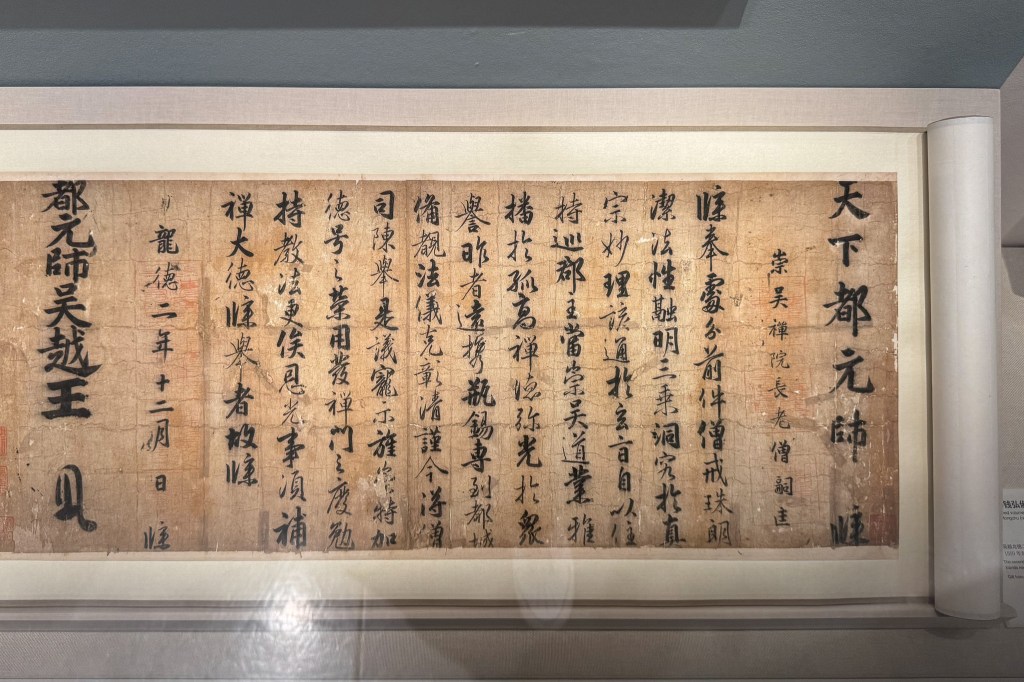 天下都元帥 牒
崇吳禪院長老僧嗣匡
牒奉處分前件僧戒珠朗
潔法性融明三乘洞究於真
宗妙理該通於玄旨自以住
持巡郡主當崇吳道業雅
播於孤高禪德弥光於衆
譽昨者遠携瓶錫專到都城
備覩法儀克彰清謹今得僧
司陳舉是議寵尓旌崇特加
德号之榮用發禪門之慶勉
持教法更俟恩光事須補
禪大德牒舉者故牒
龍德二年十二月 日 牒
都元帥吳越王